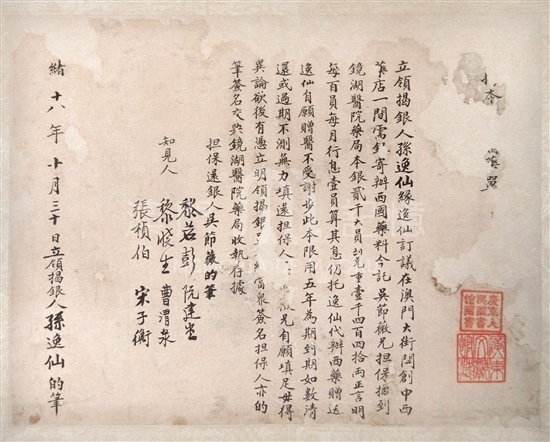 立領揭銀人孫逸仙緣逸仙訂議在澳門大街開創中西
藥店一間需銀寄辦西國藥料今託吳節薇兄担保揭到
鏡湖醫院藥局本銀貳千大員七兌重壹千四百四拾兩正言明
每百員每月行息壹員算其息仍托逸仙代辦西藥贈送
逸仙自願贈醫不受謝步此本限用五年為期到期如數清
還或過期不測無力填還担保人 薇兄自願填足毋得
異論欲後有憑立明領揭銀 紙當衆簽名担保人亦的
筆簽名交與鏡湖醫院藥局收執存據
担保還銀人吳節薇的筆
知見人
黎若彭 阮建堂
黎晓生 曹渭泉
張楨伯 宋子衡
緒十八年十月三十日立領揭銀人孫逸仙的筆